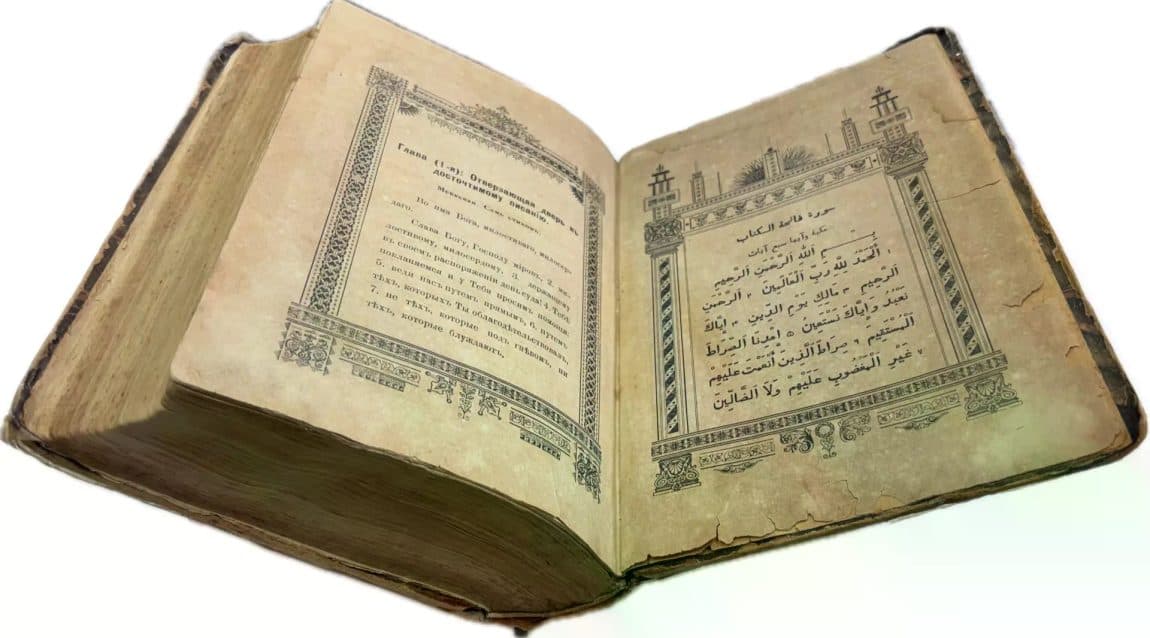 Глава (1-я): Отверзающая дверь къ
досточтимому писанію.
Меккская. Семь стиховъ.
Во имя Бога, милостиваго, милосер-
даго.
Слава Богу, Господу міровъ, 2. ми-
лостивому, милосердому, 3. держащему
въ своемъ распоряженіи день суда! 4. Тебѣ
покланяемся и у Тебя просимъ помощи:
5. веди насъ путемъ прямымъ, 6. путемъ
тѣхъ, которыхъ Ты облагодѣтельствовалъ,
7. не тѣхъ, которые подъ гнѣвомъ, ни
тѣхъ, которые блуждаютъ.
سورة فاتحة الكتاب
مكية وآيها سبع آيات
بِسْمِ اللّٰهِ الرَّحْمٰنِ الرَّحِيمِ
١ اَلْحَمْدُ لِلّٰهِ رَبِّ الْعَالَمِينَ ٢ اَلرَّحْمٰنِ
الرَّحِيمِ ٣ مَالِكِ يَوْمِ الدِّينِ ٤ إِيَّاكَ
نَعْبُدُ وَإِيَّاكَ نَسْتَعِينُ ٥ إِهْدِنَا الصِّرَاطَ
الْمُسْتَقِيمَ ٦ صِرَاطَ الَّذِينَ أَنْعَمْتَ عَلَيْهِمْ
٧ غَيْرِ الْمَغْضُوبِ عَلَيْهِمْ وَلَا الضَّالِّينَ